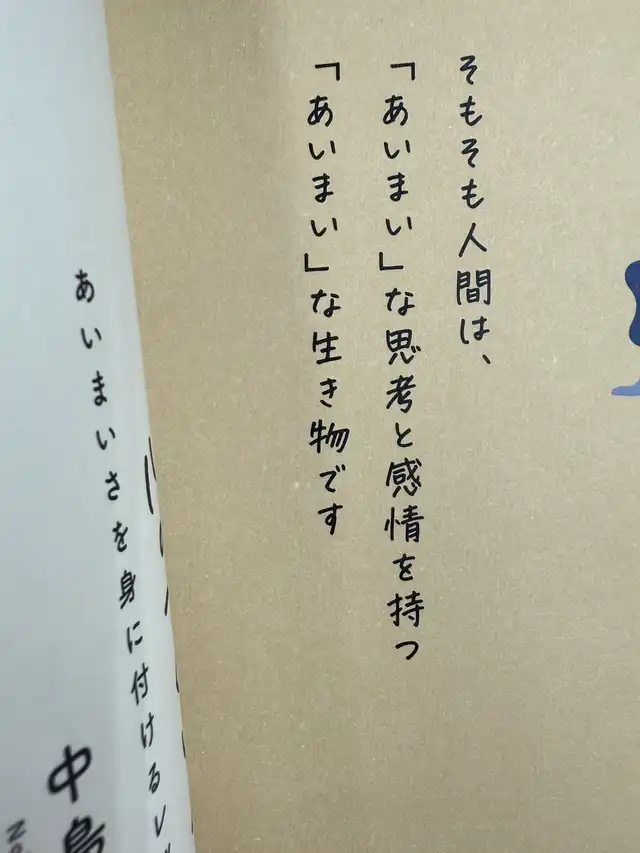 そもそも人間は、
「あいまい」な思考と感情を持つ
「あいまい」な生き物です
あいまいさを身に付けるレ
中島